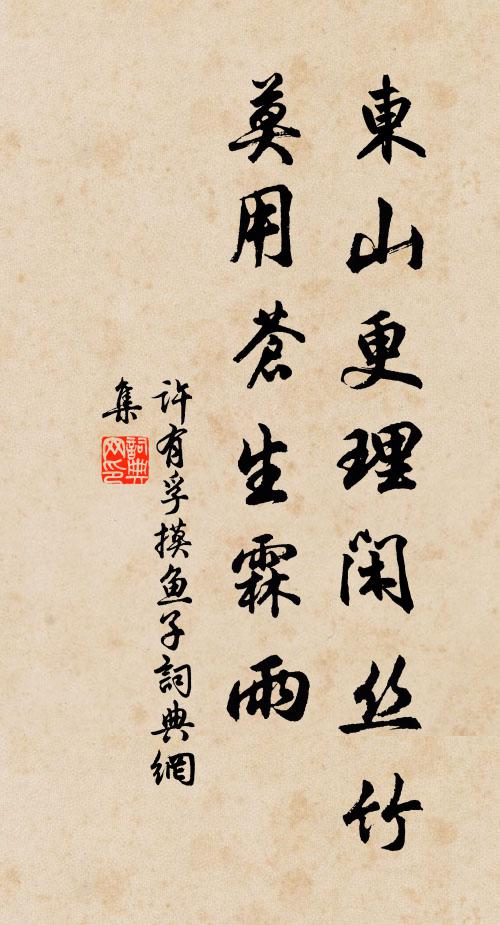 東山更理闲丝竹
莫用蒼生霖雨
许有孚摸鱼子詞典網
集
詞典
网印